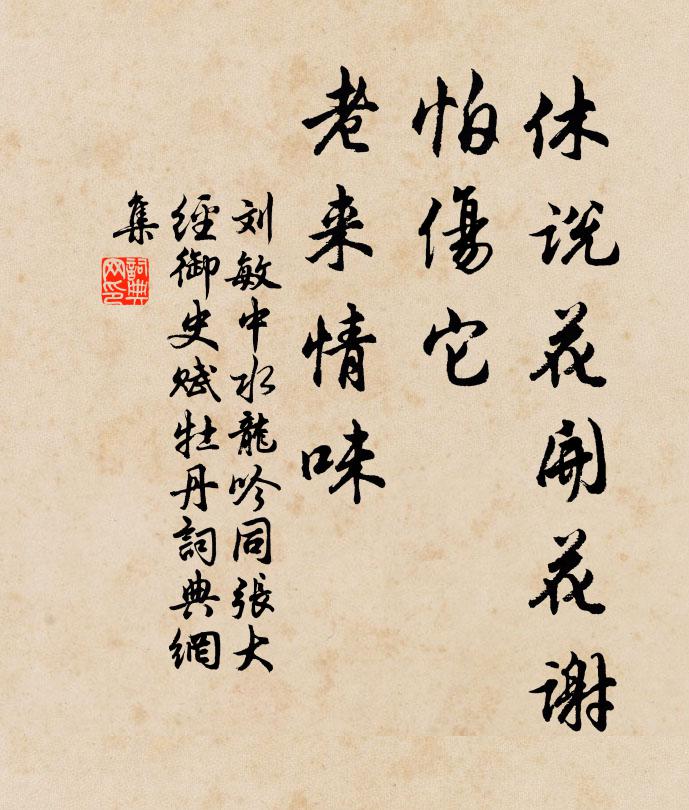 休说花開花謝
怕傷它
老来情味
刘敏中水龍吟同張大
經御史赋牡丹詞典網
集
詞典
网印